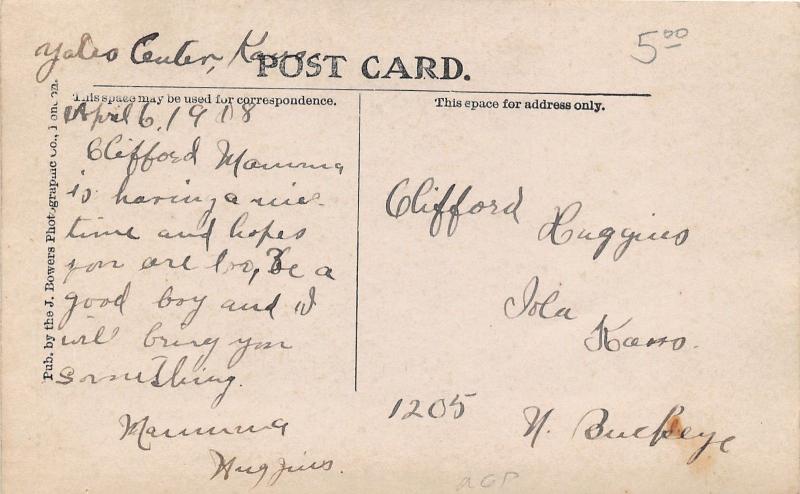 Yates Center, Kans
5.00
POST CARD.
This space may be used for correspondence.
This space for address only.
April 6, 1908
Clifford Mamma
is having a nice
time and hopes
you are too, Be a
good boy and I
will bring you
something.
Mamma
Huggins.
Clifford
Huggins
Iola
Kans.
1205
N. Buckeye
Pub. by the J. Bowers Photographic Co.,